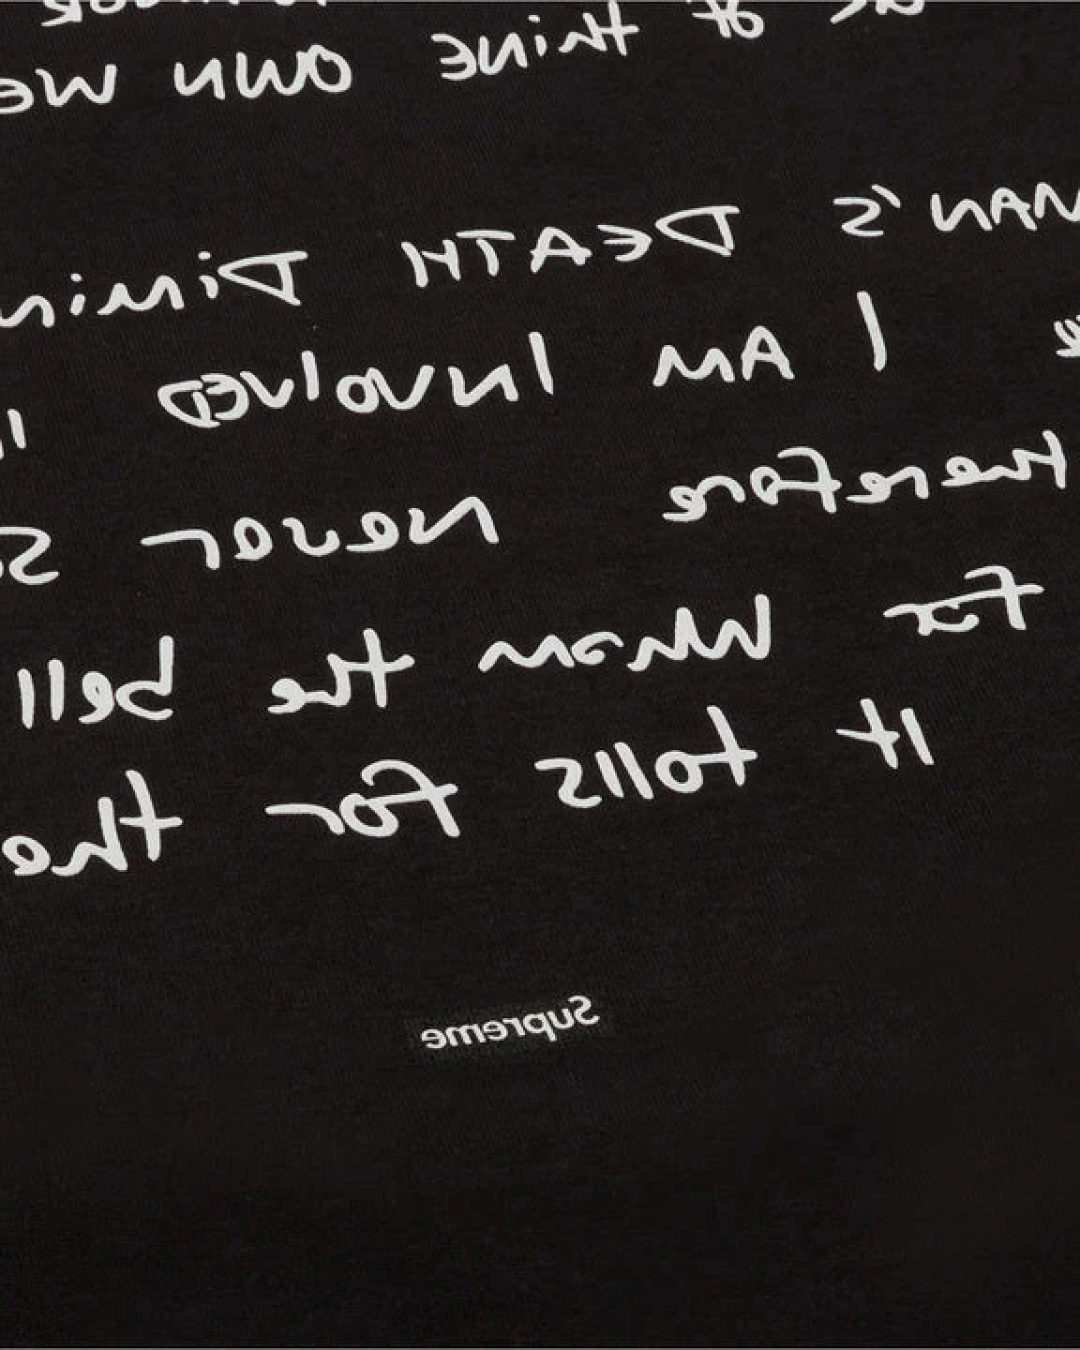 or of thine own
MAN'S DEATH Dimin
I AM InvolvED
therefore never
For Whom the bell
It tolls for thee
Supreme